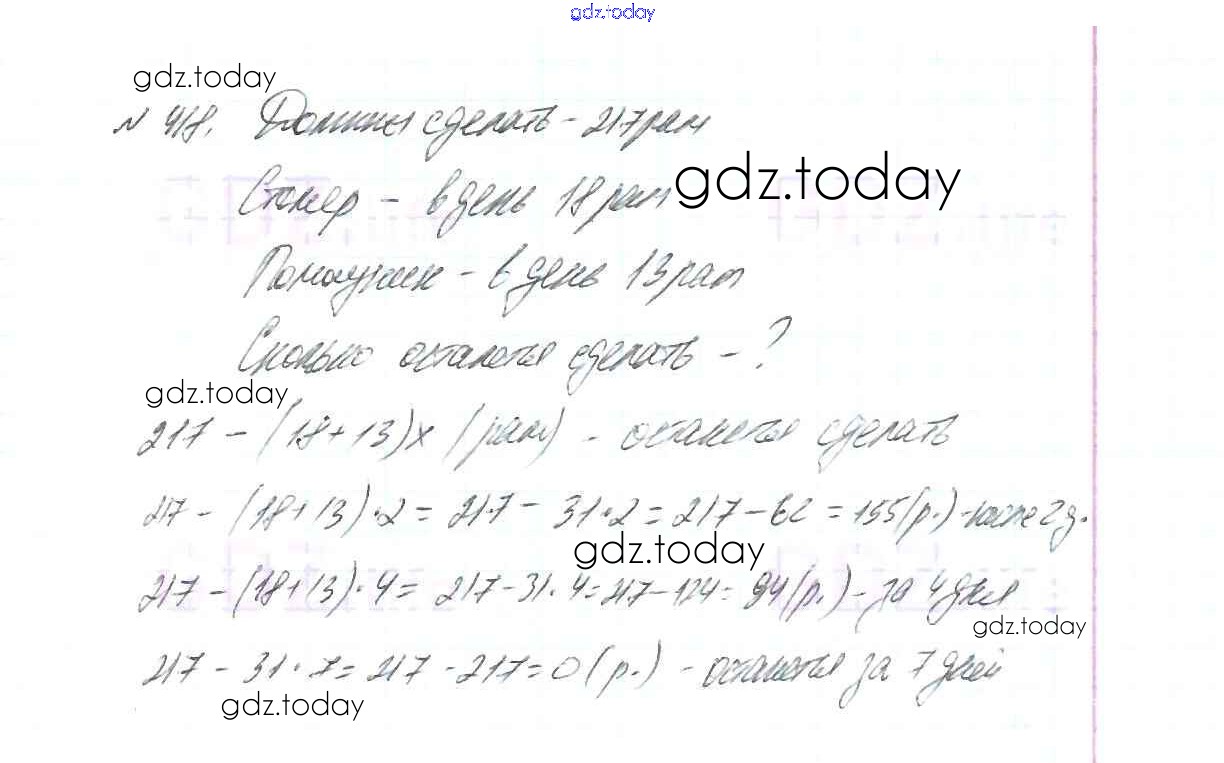 gdz.today
gdz.today
№ 418. Должны сделать - 217 рам
Столяр - в день 18 рам
gdz.today
Помощник - в день 13 рам
Сколько останется сделать - ?
gdz.today
217 - (18+13)x (рам) - останется сделать
217 - (18+13)·2 = 217 - 31·2 = 217 - 62 = 155(р.) - после 2 д.
gdz.today
217 - (18+13)·4 = 217-31·4 = 217-124 = 94(р.) - за 4 дня
gdz.today
217 - 31·7 = 217 - 217 = 0 (р.) - останется за 7 дней
gdz.today